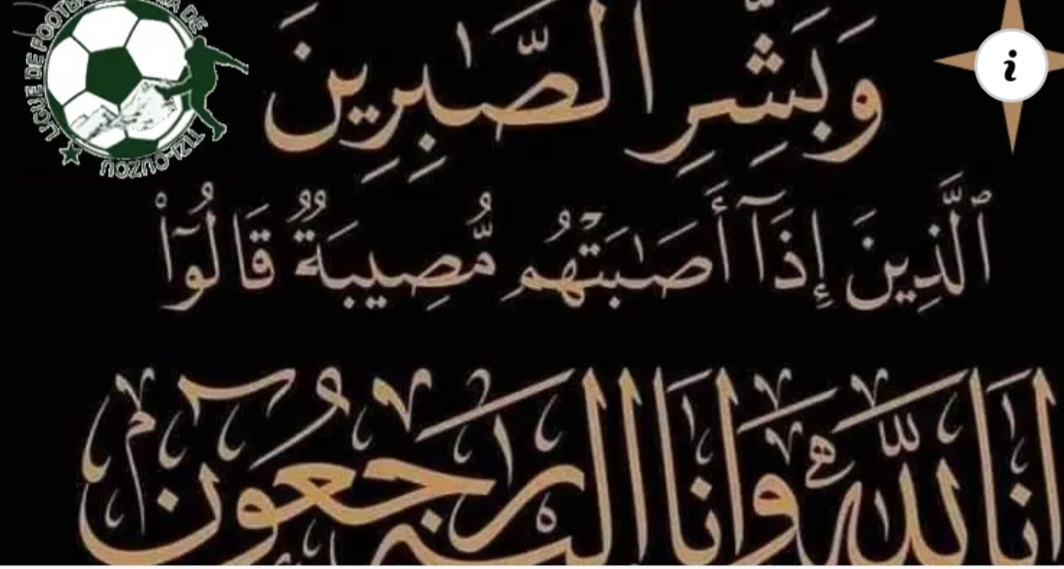 وَبَشِّرِ الصَّٰبِرِينَ
ٱلَّذِينَ إِذَآ أَصَٰبَتْهُم مُّصِيبَةٌ قَالُوٓا۟
انا لله وانا اليه راجعون
LIGUE DE FOOTBA
DE
TIZI-OUZOU
i